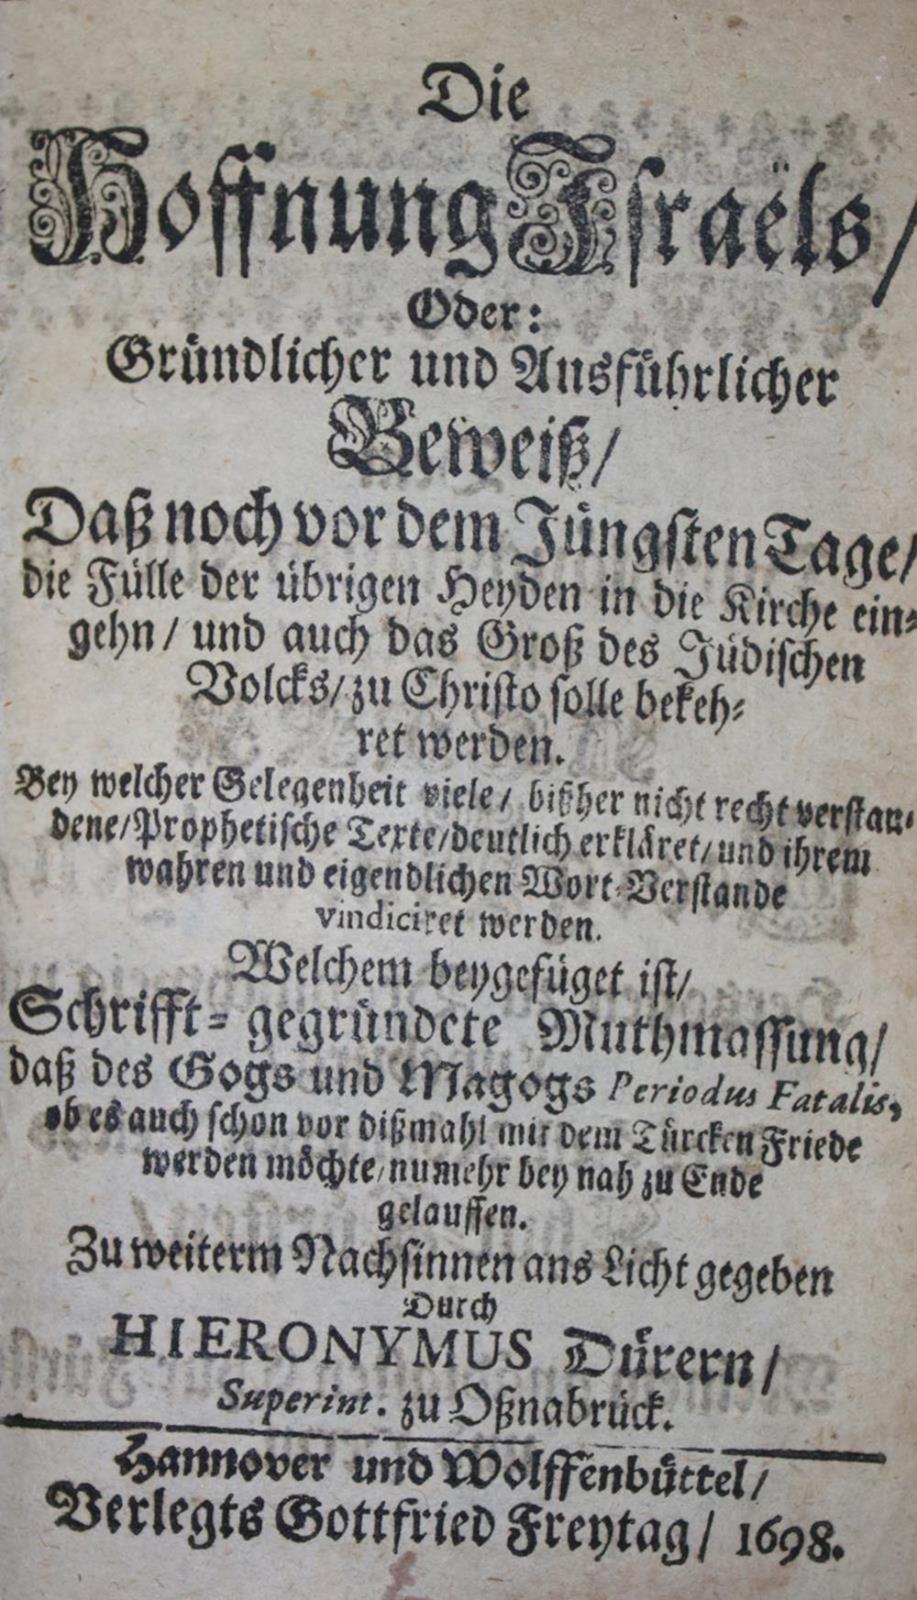 Die
Hoffnung Israëls/
Oder:
Gründlicher und Ausführlicher
Beweiß/
Daß noch vor dem Jüngsten Tage/
die Fülle der übrigen Heyden in die Kirche ein-
gehn/ und auch das Groß des Jüdischen
Volcks/ zu Christo solle bekeh-
ret werden.
Bey welcher Gelegenheit viele/ bißher nicht recht verstan-
dene/ Prophetische Texte/ deutlich erkläret/ und ihrem
wahren und eigendlichen Wort-Verstande
vindiciret werden.
Welchem beygefüget ist/
Schrifft-gegründete Muthmassung/
daß des Gogs und Magogs Periodus Fatalis,
ob es auch schon vor dißmahl mit dem Türcken Friede
werden möchte/ numehr bey nah zu Ende
gelauffen.
Zu weiterm Nachsinnen ans Licht gegeben
Durch
HIERONYMUS Dürern/
Superint. zu Oßnabrück.
Hannover und Wolffenbüttel/
Verlegts Gottfried Freytag/ 1698.